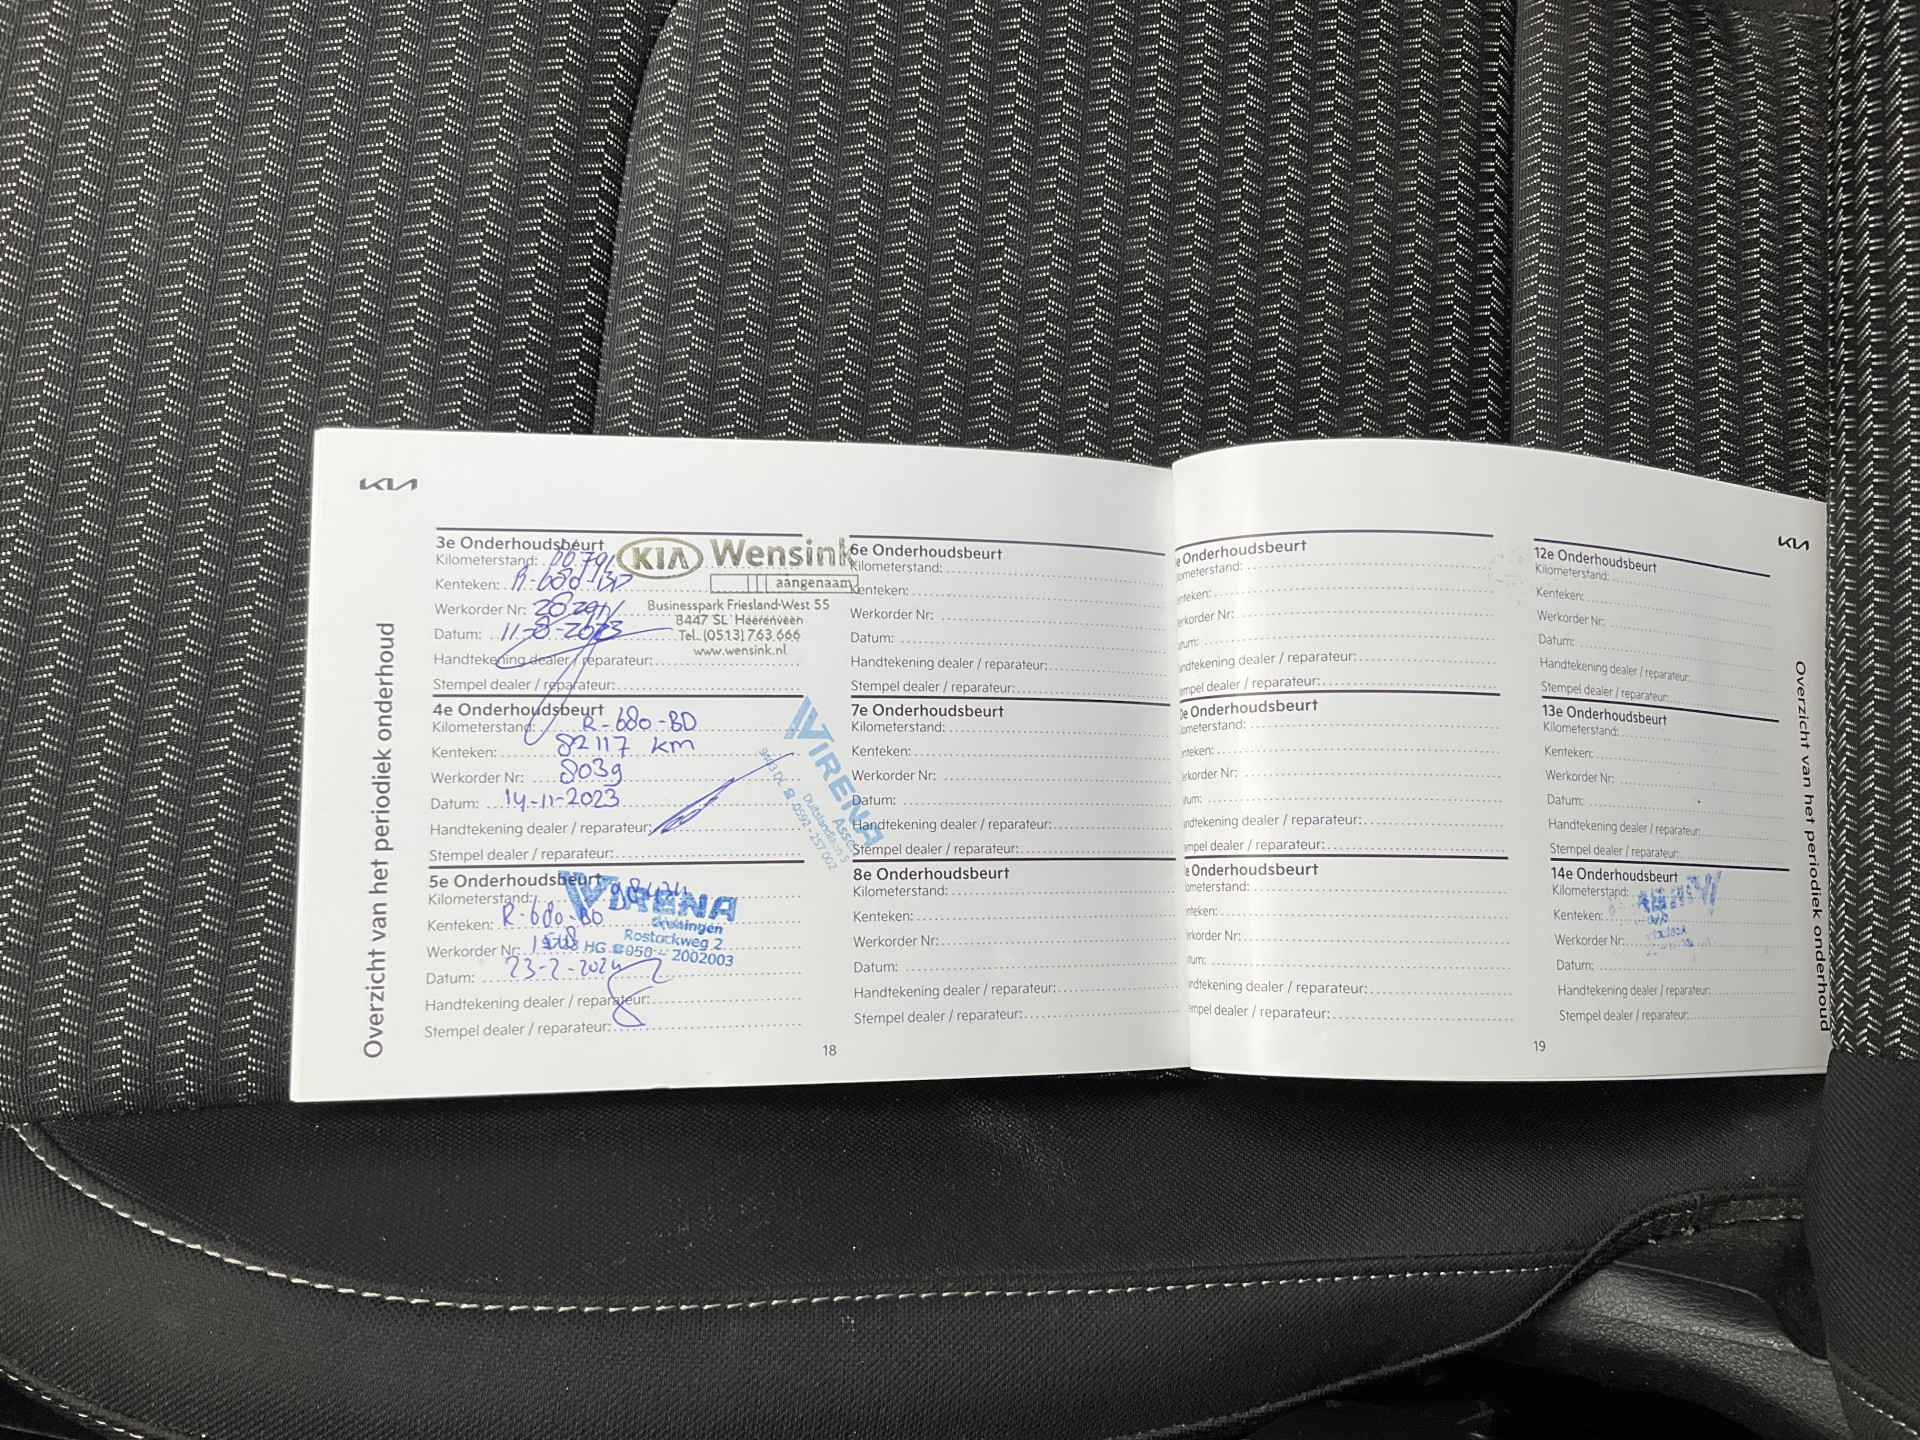 KIA
Overzicht van het periodiek onderhoud
3e Onderhoudsbeurt
Kilometerstand:
Kenteken: R-680-BD
Werkorder Nr:
Datum: 11-8-2023
Handtekening dealer / reparateur:
Stempel dealer / reparateur:
KIA Wensink
aangenaam
Businesspark Friesland-West 55
8447 SL Heerenveen
Tel. (0513) 763 666
www.wensink.nl
4e Onderhoudsbeurt
Kilometerstand: R-680-BD
Kenteken: 82117 km
Werkorder Nr: 8039
Datum: 14-11-2023
Handtekening dealer / reparateur:
Stempel dealer / reparateur:
WIRENA
Assen
Duitslandlaan 5
0592-257 002
5e Onderhoudsbeurt
Kilometerstand:
Kenteken: R-680-BD
Werkorder Nr:
Datum: 23-2-2024
Handtekening dealer / reparateur:
Stempel dealer / reparateur:
WIRENA
Groningen
Rostockweg 2
HG 050 - 2002003
6e Onderhoudsbeurt
Kilometerstand:
Kenteken:
Werkorder Nr:
Datum:
Handtekening dealer / reparateur:
Stempel dealer / reparateur:
7e Onderhoudsbeurt
Kilometerstand:
Kenteken:
Werkorder Nr:
Datum:
Handtekening dealer / reparateur:
Stempel dealer / reparateur:
8e Onderhoudsbeurt
Kilometerstand:
Kenteken:
Werkorder Nr:
Datum:
Handtekening dealer / reparateur:
Stempel dealer / reparateur:
18
e Onderhoudsbeurt
ometerstand:
enteken:
erkorder Nr:
tum:
ndtekening dealer / reparateur:
empel dealer / reparateur:
0e Onderhoudsbeurt
ometerstand:
nteken:
erkorder Nr:
tum:
ndtekening dealer / reparateur:
mpel dealer / reparateur:
e Onderhoudsbeurt
ometerstand:
nteken:
rkorder Nr:
tum:
ndtekening dealer / reparateur:
empel dealer / reparateur:
KIA
12e Onderhoudsbeurt
Kilometerstand:
Kenteken:
Werkorder Nr:
Datum:
Handtekening dealer / reparateur:
Stempel dealer / reparateur:
13e Onderhoudsbeurt
Kilometerstand:
Kenteken:
Werkorder Nr:
Datum:
Handtekening dealer / reparateur:
Stempel dealer / reparateur:
14e Onderhoudsbeurt
Kilometerstand:
Kenteken:
Werkorder Nr:
Datum:
Handtekening dealer / reparateur:
Stempel dealer / reparateur:
Overzicht van het periodiek onderhoud
19